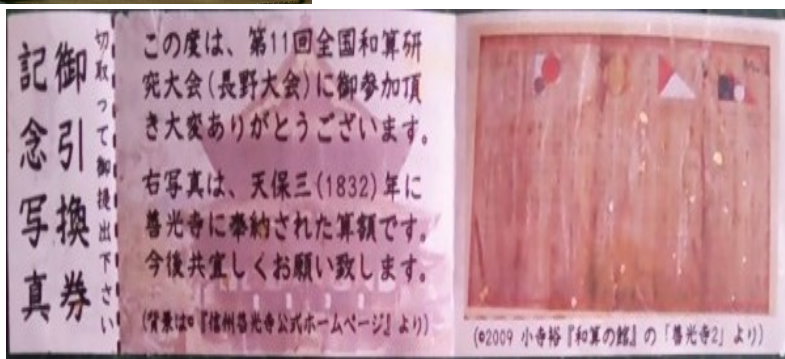 御引換券
記念写真
切取って御提出下さい
この度は、第11回全国和算研
究大会(長野大会)に御参加頂
き大変ありがとうございます。
右写真は、天保三(1832)年に
善光寺に奉納された算額です。
今後共宜しくお願い致します。
(背景は©『信州善光寺公式ホームページ』より)
(©2009 小寺裕『和算の館』の「善光寺2」より)